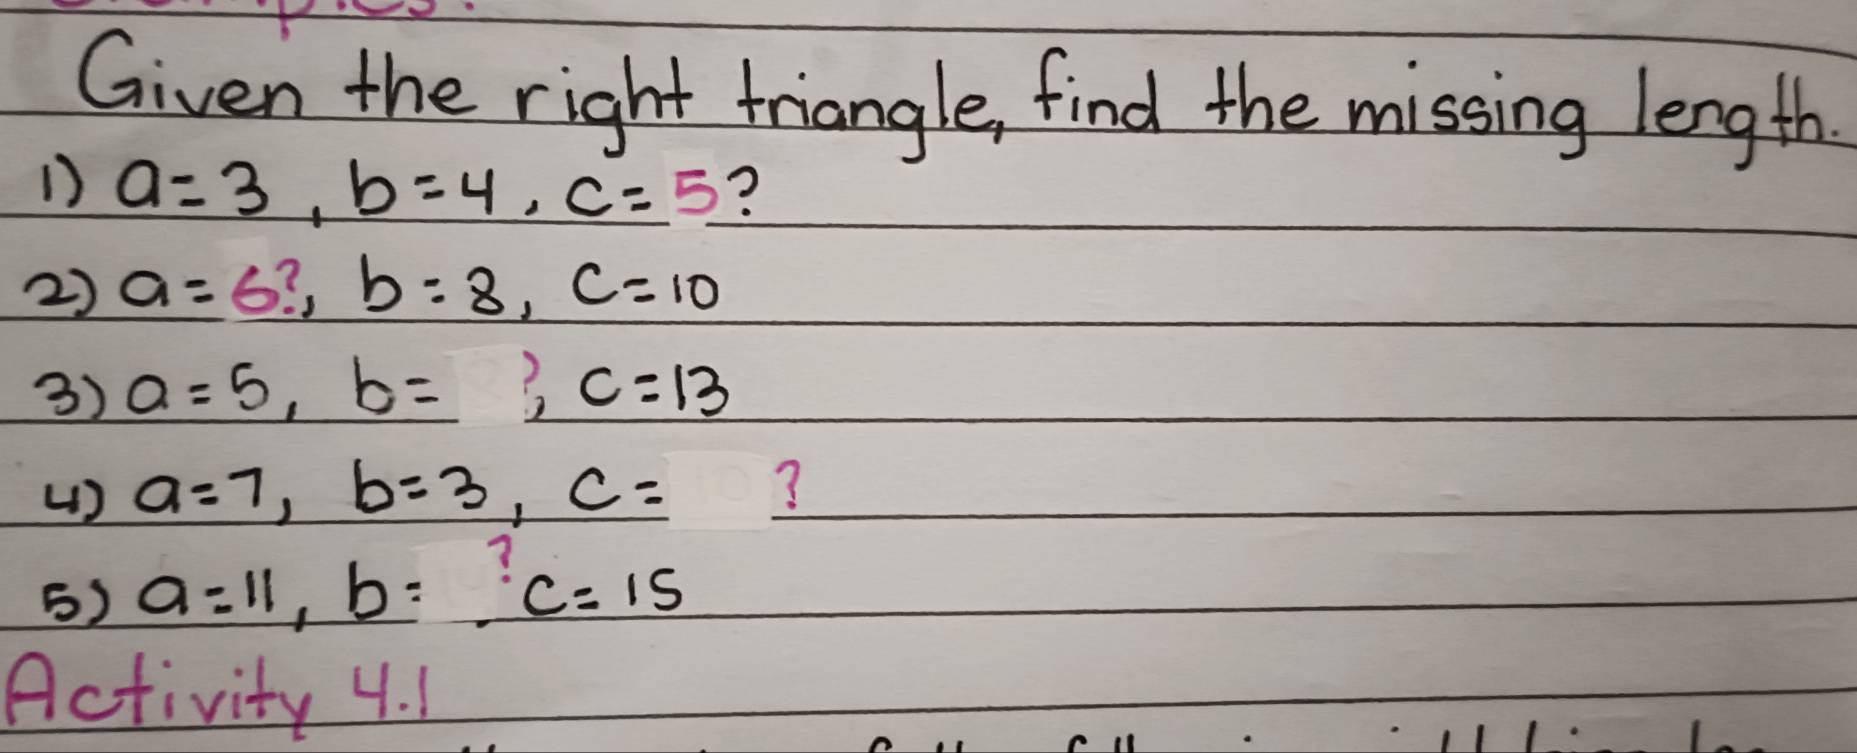 Given the right triangle, find the missing length.
1) a=3, b=4, c=5?
2) a=6?, b=8, c=10
3) a=5, b= ?, c=13
4) a=7, b=3, c= ?
5) a=11, b= ? c=15
Activity 4.1